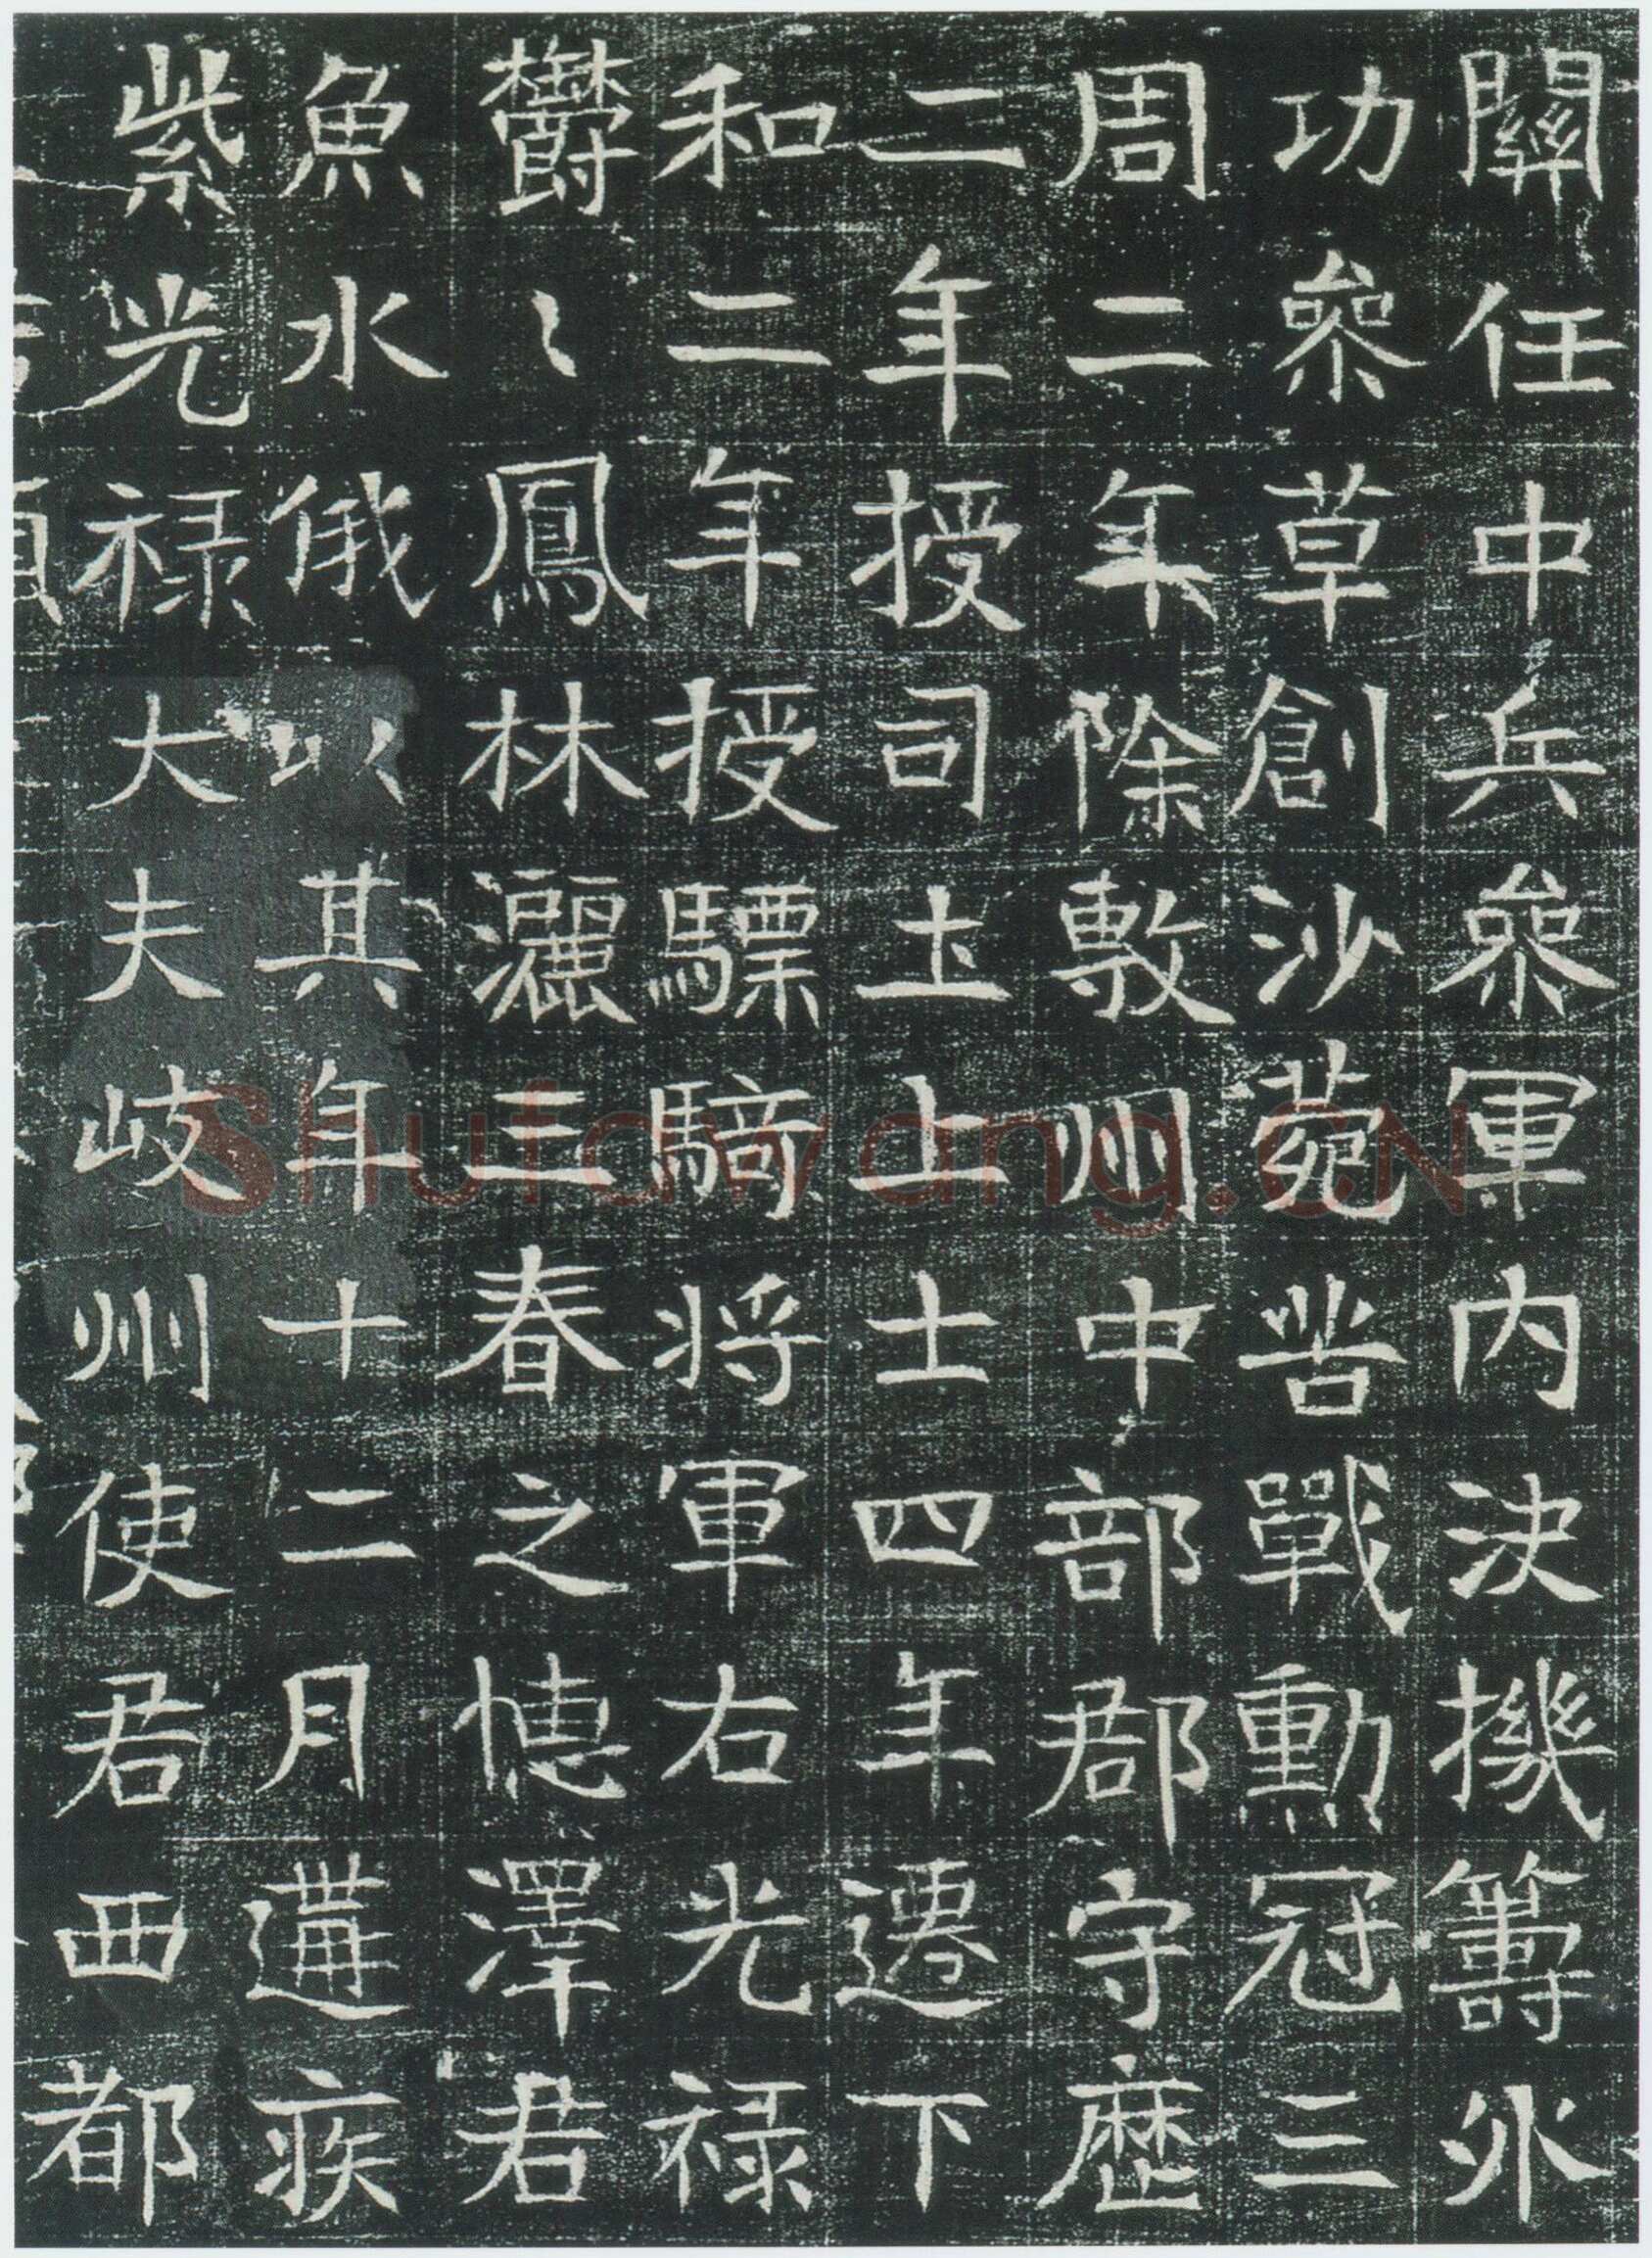 關任中兵叅軍內決機籌外
功叅草創沙菀苦戰勳冠三
周二年除敷州中部郡守歷
二年授司土上士四年遷下
和二年授驃騎将軍右光禄
鬱〻鳳林灑三春之憓澤君
魚水俄以其年十二月遘疾
紫光禄大夫岐州使君西都
Shufawang.CN